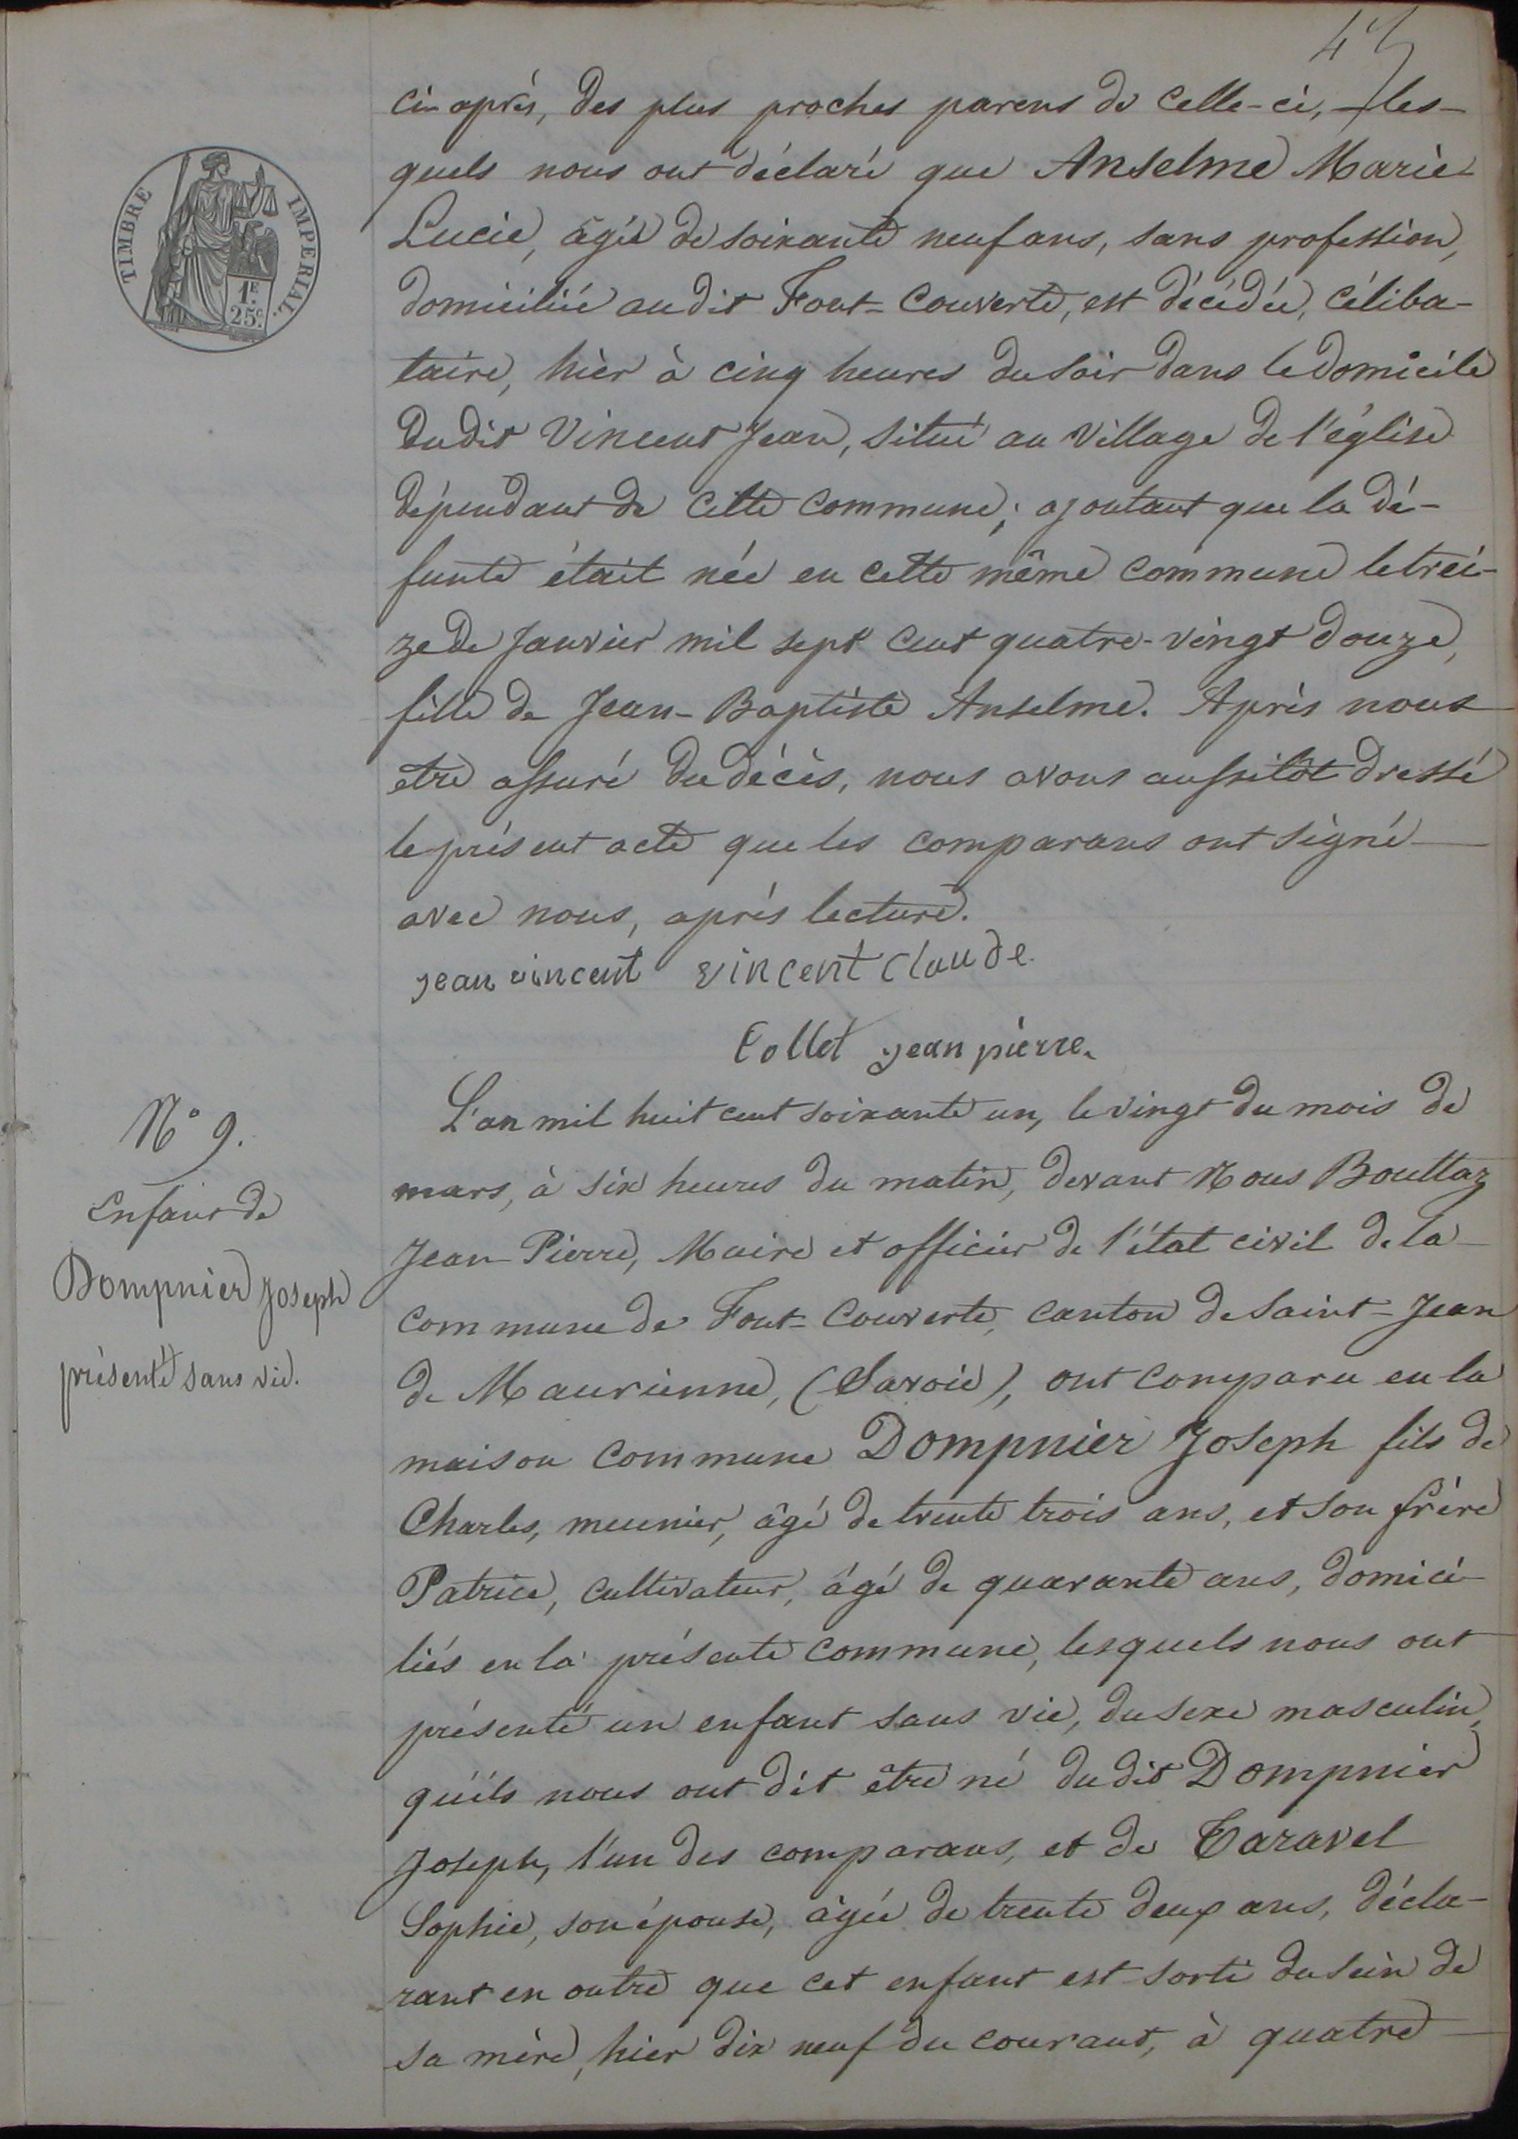 ci-après, des plus proches parens de celle-ci, les-
quels nous ont déclaré que Anselme Marie
Lucie, âgée de soixante neuf ans, sans profession,
domiciliée audit Font-Couverte, est décédée, céliba-
taire, hier à cinq heures du soir dans le domicile
dudit Vincent Jean, situé au village de l'église
dépendant de cette commune; ajoutant que la dé-
funte était née en cette même commune le trei-
ze de Janvier mil sept cent quatre-vingt douze,
fille de Jean-Baptiste Anselme. Après nous
être assuré du décès, nous avons aussitôt dressé
le présent acte que les comparans ont signé
avec nous, après lecture.
jean vincent vincent claude
Collet jean pierre.
TIMBRE IMPERIAL.
1F.
25c.
N° 9.
Enfant de
Dompnier Joseph
présenté sans vie.
L'an mil huit cent soixante un, le vingt du mois de
mars, à six heures du matin, devant Nous Bouttaz
Jean-Pierre, Maire et officier de l'état civil de la
commune de Font-Couverte, canton de Saint-Jean
de Maurienne, (Savoie), ont comparu en la
maison commune Dompnier Joseph fils de
Charles, meunier, âgé de trente trois ans, et son frère
Patrice, cultivateur, âgé de quarante ans, domici-
liés en la présente commune, lesquels nous ont
présenté un enfant sans vie, du sexe masculin,
qu'ils nous ont dit être né dudit Dompnier
Joseph, l'un des comparans, et de Taravel
Sophie, son épouse, âgée de trente deux ans, décla-
rant en outre que cet enfant est sorti du sein de
sa mère, hier dix neuf du courant, à quatre